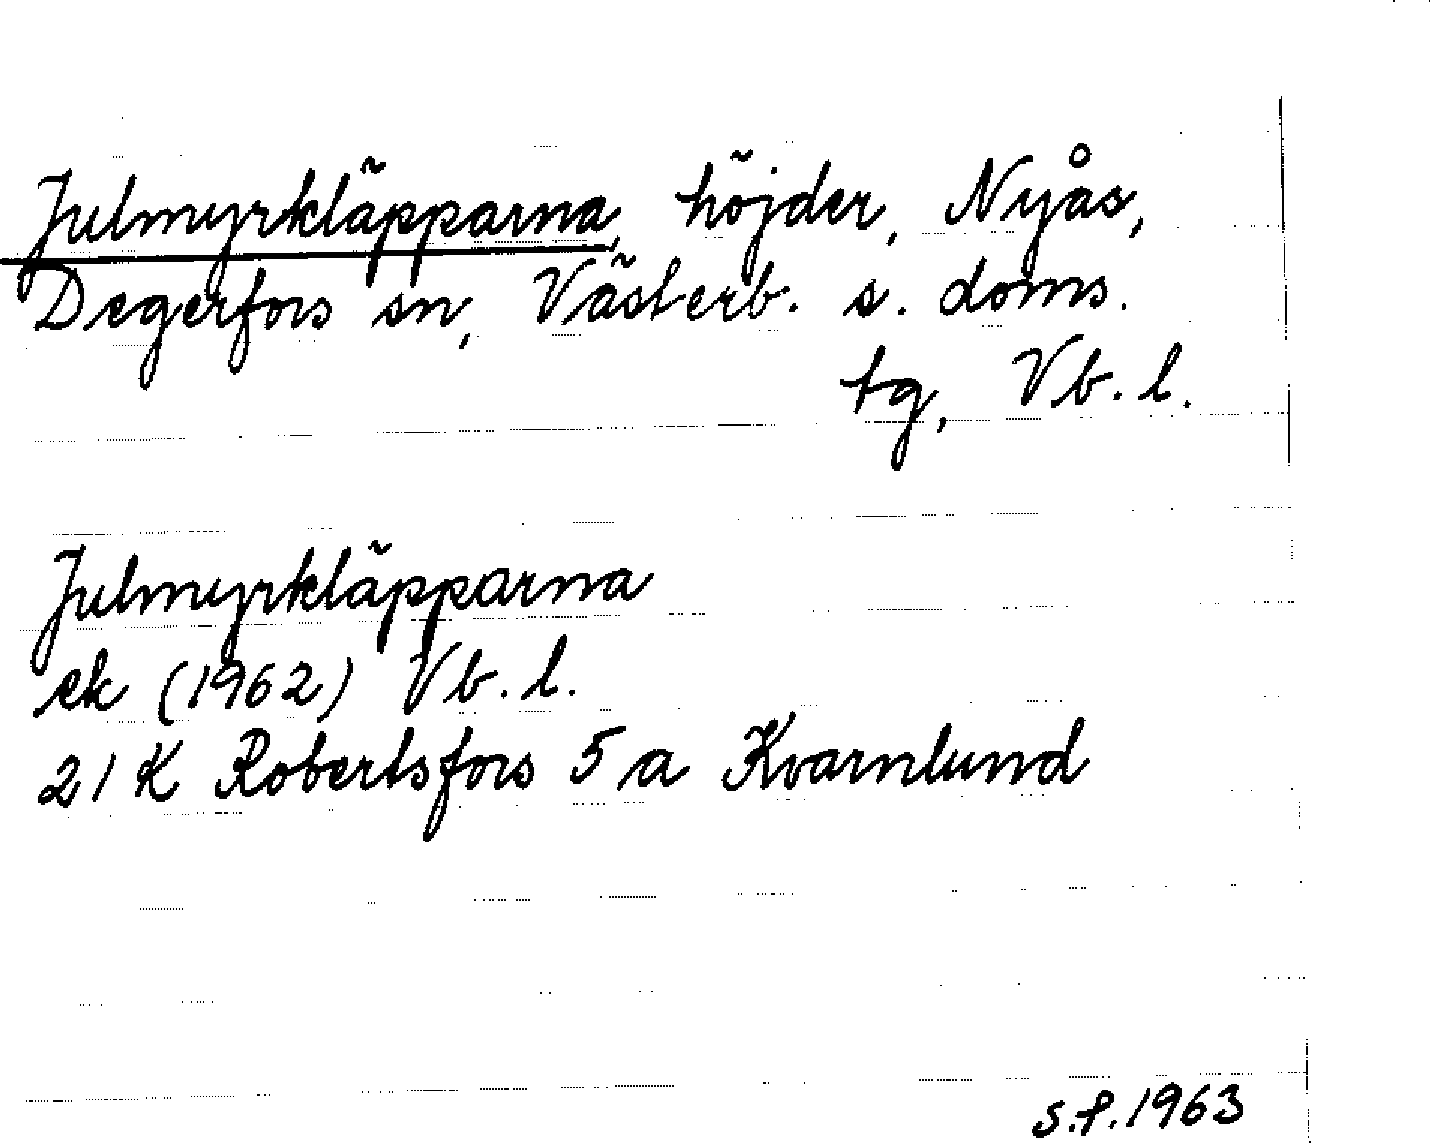 Julmyrkläpparna, höjder, Nyås,
Degerfors sn, Västerb. s. doms.
tg, Vb. l.
Julmyrkläpparna
ek (1962) Vb. l.
21 K Robertsfors 5 a Kvarnlund
s.f. 1963